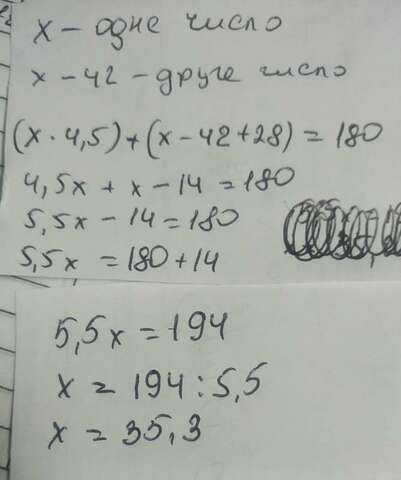 x - одне число
x - 42 - друге число
(x · 4,5) + (x - 42 + 28) = 180
4,5x + x - 14 = 180
5,5x - 14 = 180
5,5x = 180 + 14
5,5x = 194
x = 194 : 5,5
x = 35,3